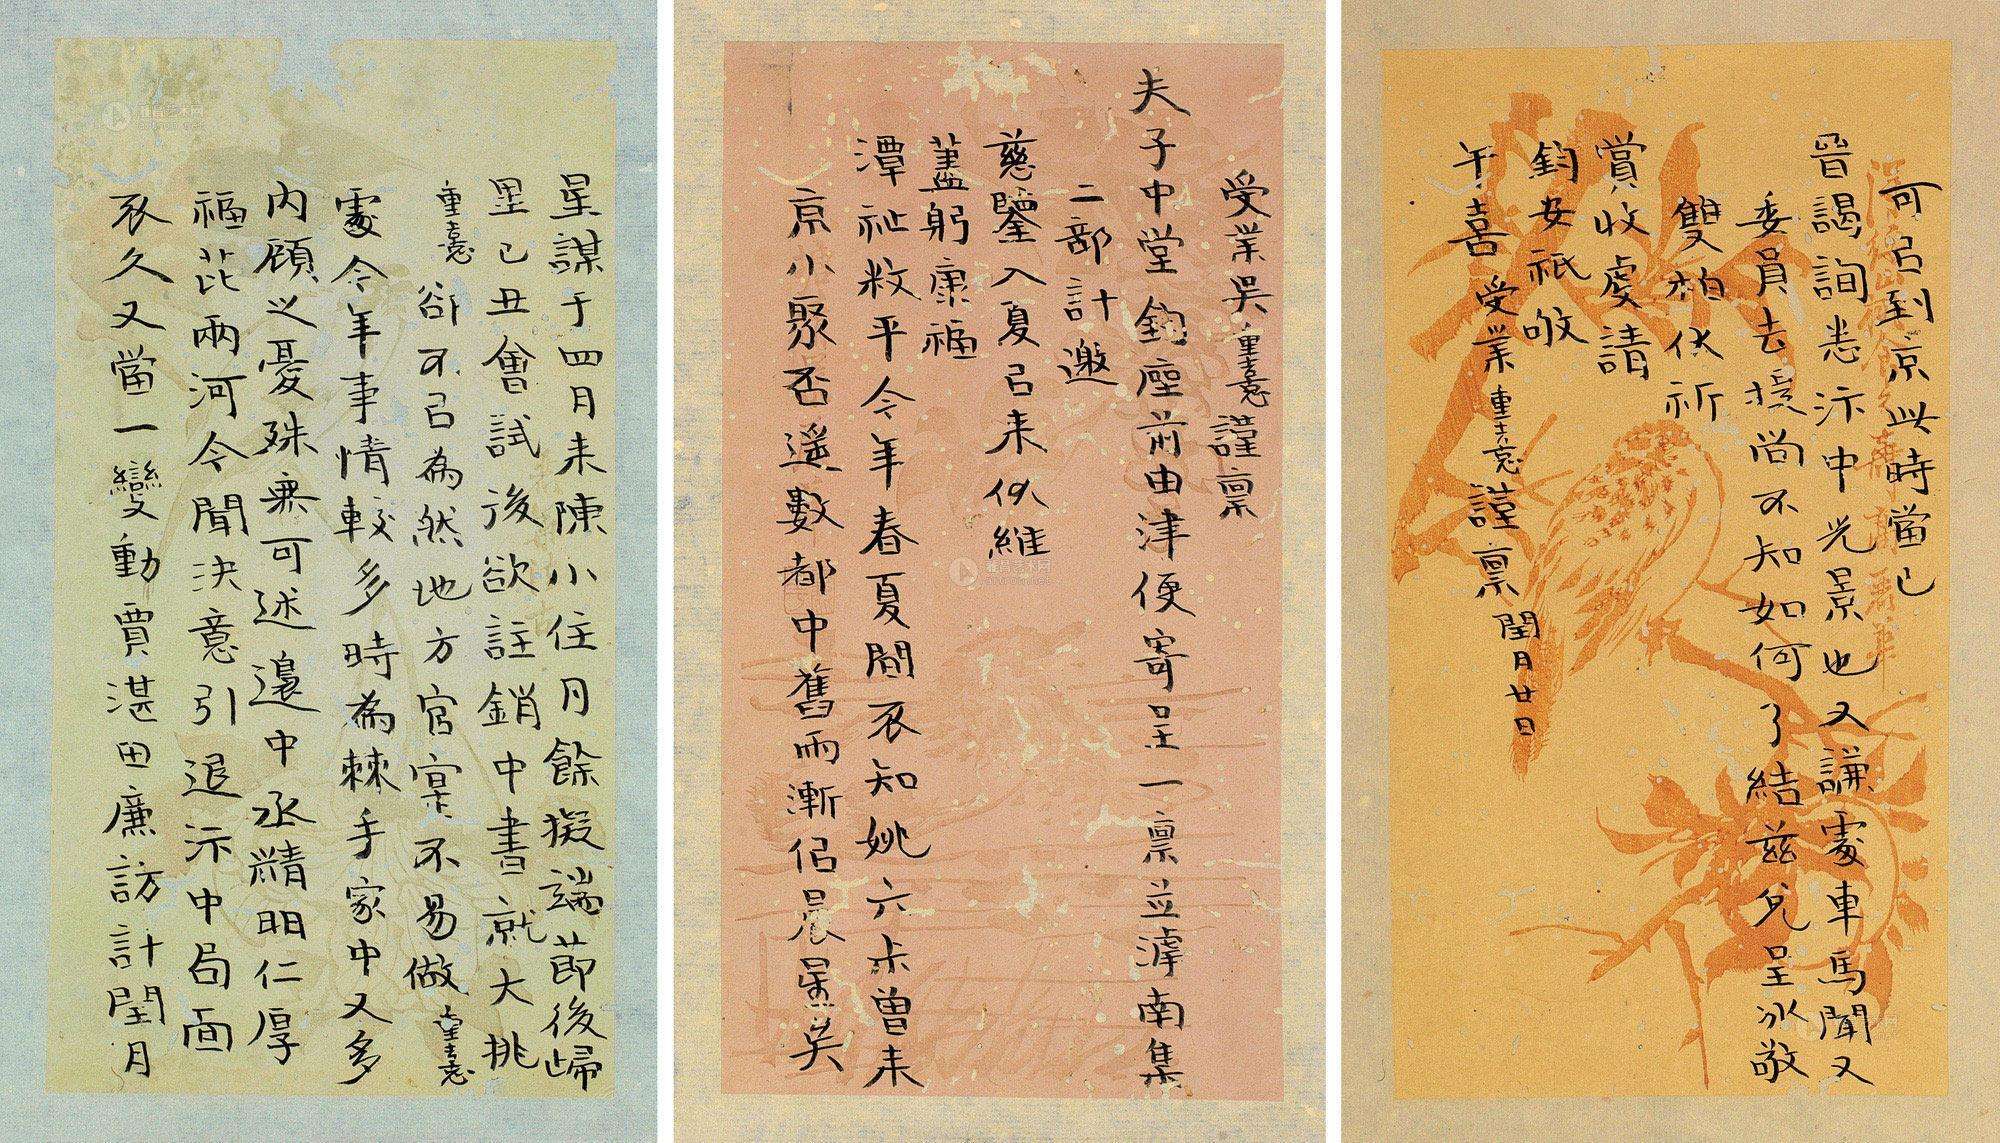 受業吳重憙謹稟
夫子中堂鈞座前由津便寄呈一稟並滹南集
二部計邀
慈鑒入夏㠯來伏維
藎躬康福
潭祉敉平今年春夏間不知姚六太曾來
京小聚否遙數都中舊雨漸侶晨星矣
星謀于四月來陳小住月餘擬端節後歸
里己丑會試後欲註銷中書就大挑
重憙卻不㠯為然地方官實不易做重憙
處今年事情較多時為棘手家中又多
內顧之憂殊無可述邊中丞精明仁厚
福芘兩河今聞決意引退沶中局面
不久又當一變動賈湛田廉訪計閏月
可㠯到京此時當已
晉謁詢悉沶中光景也又謙處車馬聞又
委員去援尚不知如何了結茲兌呈冰敬
雙柏伏祈
賞收虔請
鈞安祇敬
午喜受業重憙謹稟閏月廿日